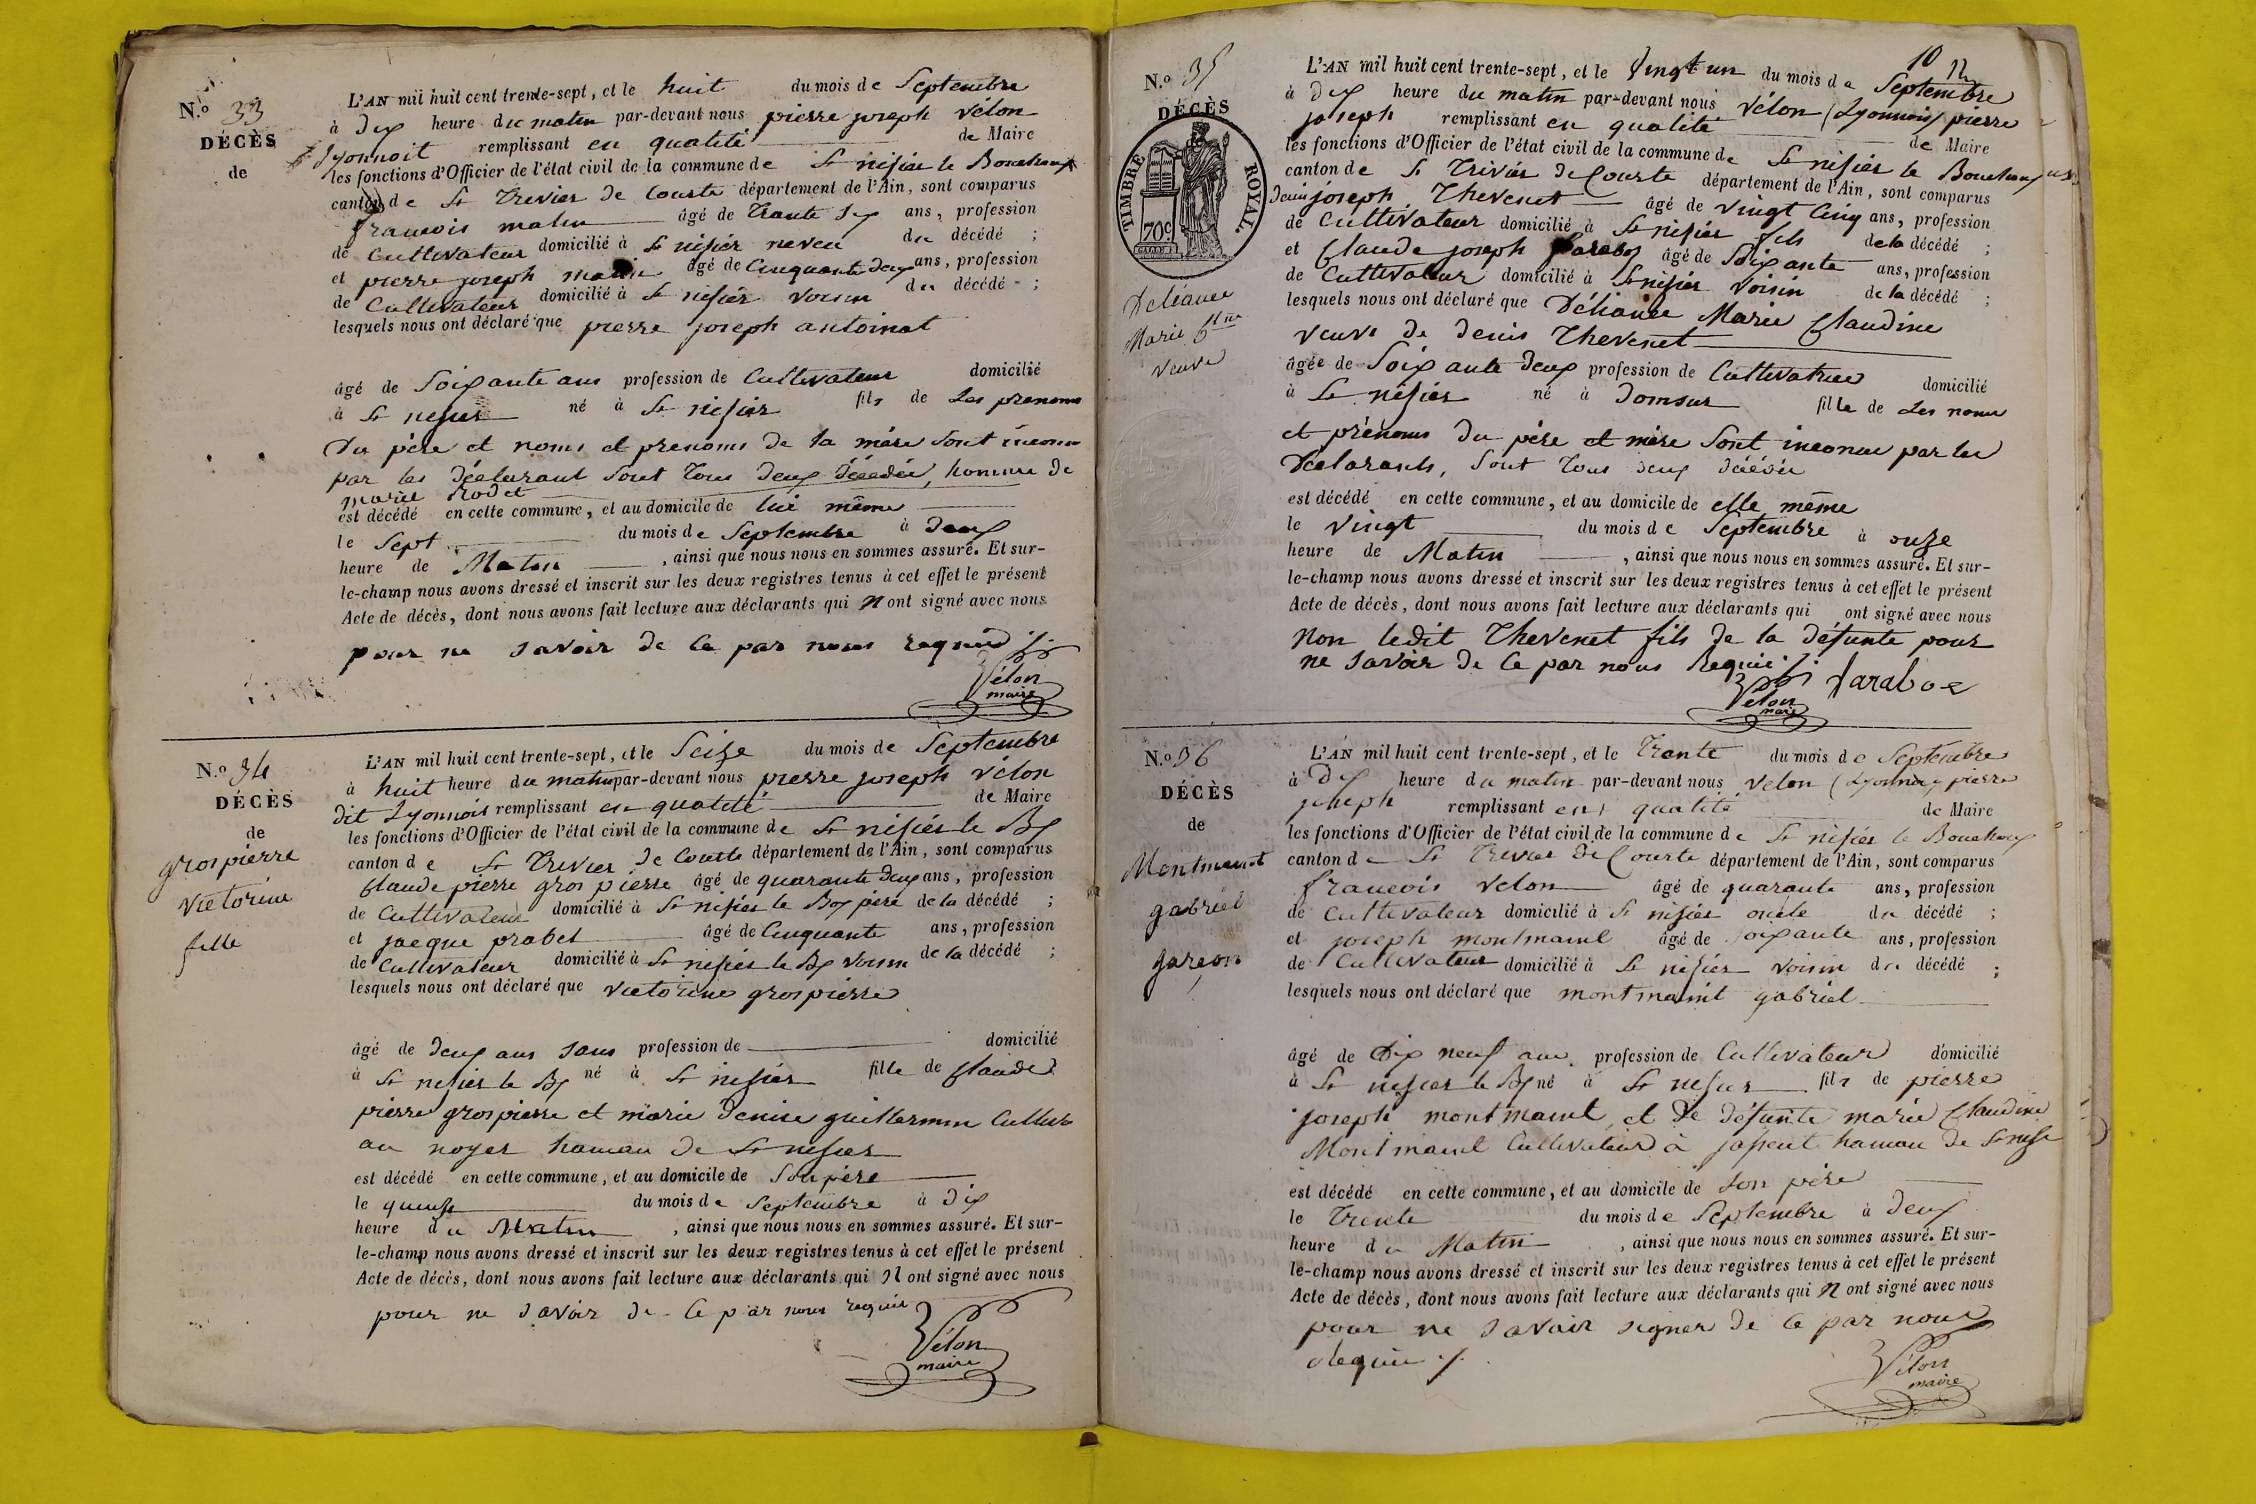 N.o 33
DÉCÈS
de
L'AN mil huit cent trente-sept, et le huit du mois de Septembre
à dix heure du matin par-devant nous pierre joseph vélon
Lyonnoit remplissant en qualité de Maire
les fonctions d'Officier de l'état civil de la commune de St nisiés le Bouchoux
canton de St Trevier de Courte département de l'Ain, sont comparus
francois matin âgé de Trante Six ans, profession
de Cultivateur domicilié à St nisiér neveu du décédé ;
et pierre joseph âgé de Cinquante deux ans, profession
de Cultivateur domicilié à St nisiér voisin du décédé ;
lesquels nous ont déclaré que pierre joseph antoinat
âgé de Soixante ans profession de Cultivateur domicilié
à St nisier né à St nisiér fils de Les prenoms
Du père et noms et prenoms de la mère Sont inconu
par les déclarant Sont Tous deux décédée, homme de
marie Rodet
est décédé en cette commune, et au domicile de lui même
le Sept du mois de Septembre à deux
heure de Matin, ainsi que nous nous en sommes assuré. Et sur-
le-champ nous avons dressé et inscrit sur les deux registres tenus à cet effet le présent
Acte de décès, dont nous avons fait lecture aux déclarants qui N ont signé avec nous
pour ne Savoir de Ce par nous requis
Vélon
maire
N.o 34
DÉCÈS
de
gros pierre
victorine
fille
L'AN mil huit cent trente-sept, et le Seize du mois de Septembre
à huit heure du matin par-devant nous pierre joseph vélon
dit Lyonnois remplissant en qualité de Maire
les fonctions d'Officier de l'état civil de la commune de St nisiés le Bx
canton de St Trevier de Courte département de l'Ain, sont comparus
Claude pierre gros pierre âgé de quarante deux ans, profession
de Cultivateur domicilié à St nisiés le Box père de la décédé ;
et jacque prabel âgé de Cinquante ans, profession
de Cultivateur domicilié à St nisiés le Bx voisin de la décédé ;
lesquels nous ont déclaré que victorine gros pierre
âgé de deux ans Sans profession de domicilié
à St nisiés le Bx né à St nisiés fille de Claude
pierre gros pierre et marie denise guillermin Cultiv
au noyer hameau de St nisier
est décédé en cette commune, et au domicile de Son père
le quinze du mois de Septembre à dix
heure du Matin, ainsi que nous nous en sommes assuré. Et sur-
le-champ nous avons dressé et inscrit sur les deux registres tenus à cet effet le présent
Acte de décès, dont nous avons fait lecture aux déclarants qui N ont signé avec nous
pour ne Savoir de Ce par nous requis
Vélon
maire
10
N.o 35
DÉCÈS
TIMBRE ROYAL.
70c
Déliance
Marie Cl.ine
veuve
L'AN mil huit cent trente-sept, et le Vingt un du mois de Septembre
à Dix heure du matin par-devant nous vélon (Lyonnois) pierre
joseph remplissant en qualité de Maire
les fonctions d'Officier de l'état civil de la commune de St nisiér le Bouchoux
canton de St Triviér de Courte département de l'Ain, sont comparus
denis joseph Thevenet âgé de vingt Cinq ans, profession
de Cultivateur domicilié à St nisiér fils de la décédé ;
et Claude joseph âgé de Soixante ans, profession
de Cultivateur domicilié à St nisiér voisin de la décédé ;
lesquels nous ont déclaré que Déliance Marie Claudine
veuve de denis Thevenet
âgée de Soixante deux profession de Cultivatrice domicilié
à St nisiér né à domsur fille de Les noms
et prénoms du père et mère Sont inconu par les
Déclarants, Sont Tous deux décédée
est décédé en cette commune, et au domicile de elle même
le vingt du mois de Septembre à onze
heure de Matin, ainsi que nous nous en sommes assuré. Et sur-
le-champ nous avons dressé et inscrit sur les deux registres tenus à cet effet le présent
Acte de décès, dont nous avons fait lecture aux déclarants qui ont signé avec nous
Non ledit Thevenet fils de la défunte pour
ne Savoir de Ce par nous Requis
Vélon
maire
N.o 36
DÉCÈS
de
Montmamt
gabriel
garçon
L'AN mil huit cent trente-sept, et le Trante du mois de Septembre
à Dix heure du matin par-devant nous velon (Lyonnois) pierre
joseph remplissant en qualité de Maire
les fonctions d'Officier de l'état civil de la commune de St nisiér le Bouchoux
canton de St Trevier de Courte département de l'Ain, sont comparus
francois velon âgé de quarante ans, profession
de Cultivateur domicilié à St nisiér oncle du décédé ;
et joseph montmamt âgé de Soixante ans, profession
de Cultivateur domicilié à St nisiér voisin du décédé ;
lesquels nous ont déclaré que montmamt gabriel
âgé de Dix neuf ans profession de Cultivateur domicilié
à St nisier le Bx né à St nisier fils de pierre
joseph montmamt et de défunte marie Claudine
Montmamt Cultivateur à hameau de St nisie
est décédé en cette commune, et au domicile de Son père
le Trente du mois de Septembre à deux
heure du Matin, ainsi que nous nous en sommes assuré. Et sur-
le-champ nous avons dressé et inscrit sur les deux registres tenus à cet effet le présent
Acte de décès, dont nous avons fait lecture aux déclarants qui N ont signé avec nous
pour ne Savoir signer de Ce par nous
Requis
Vélon
maire